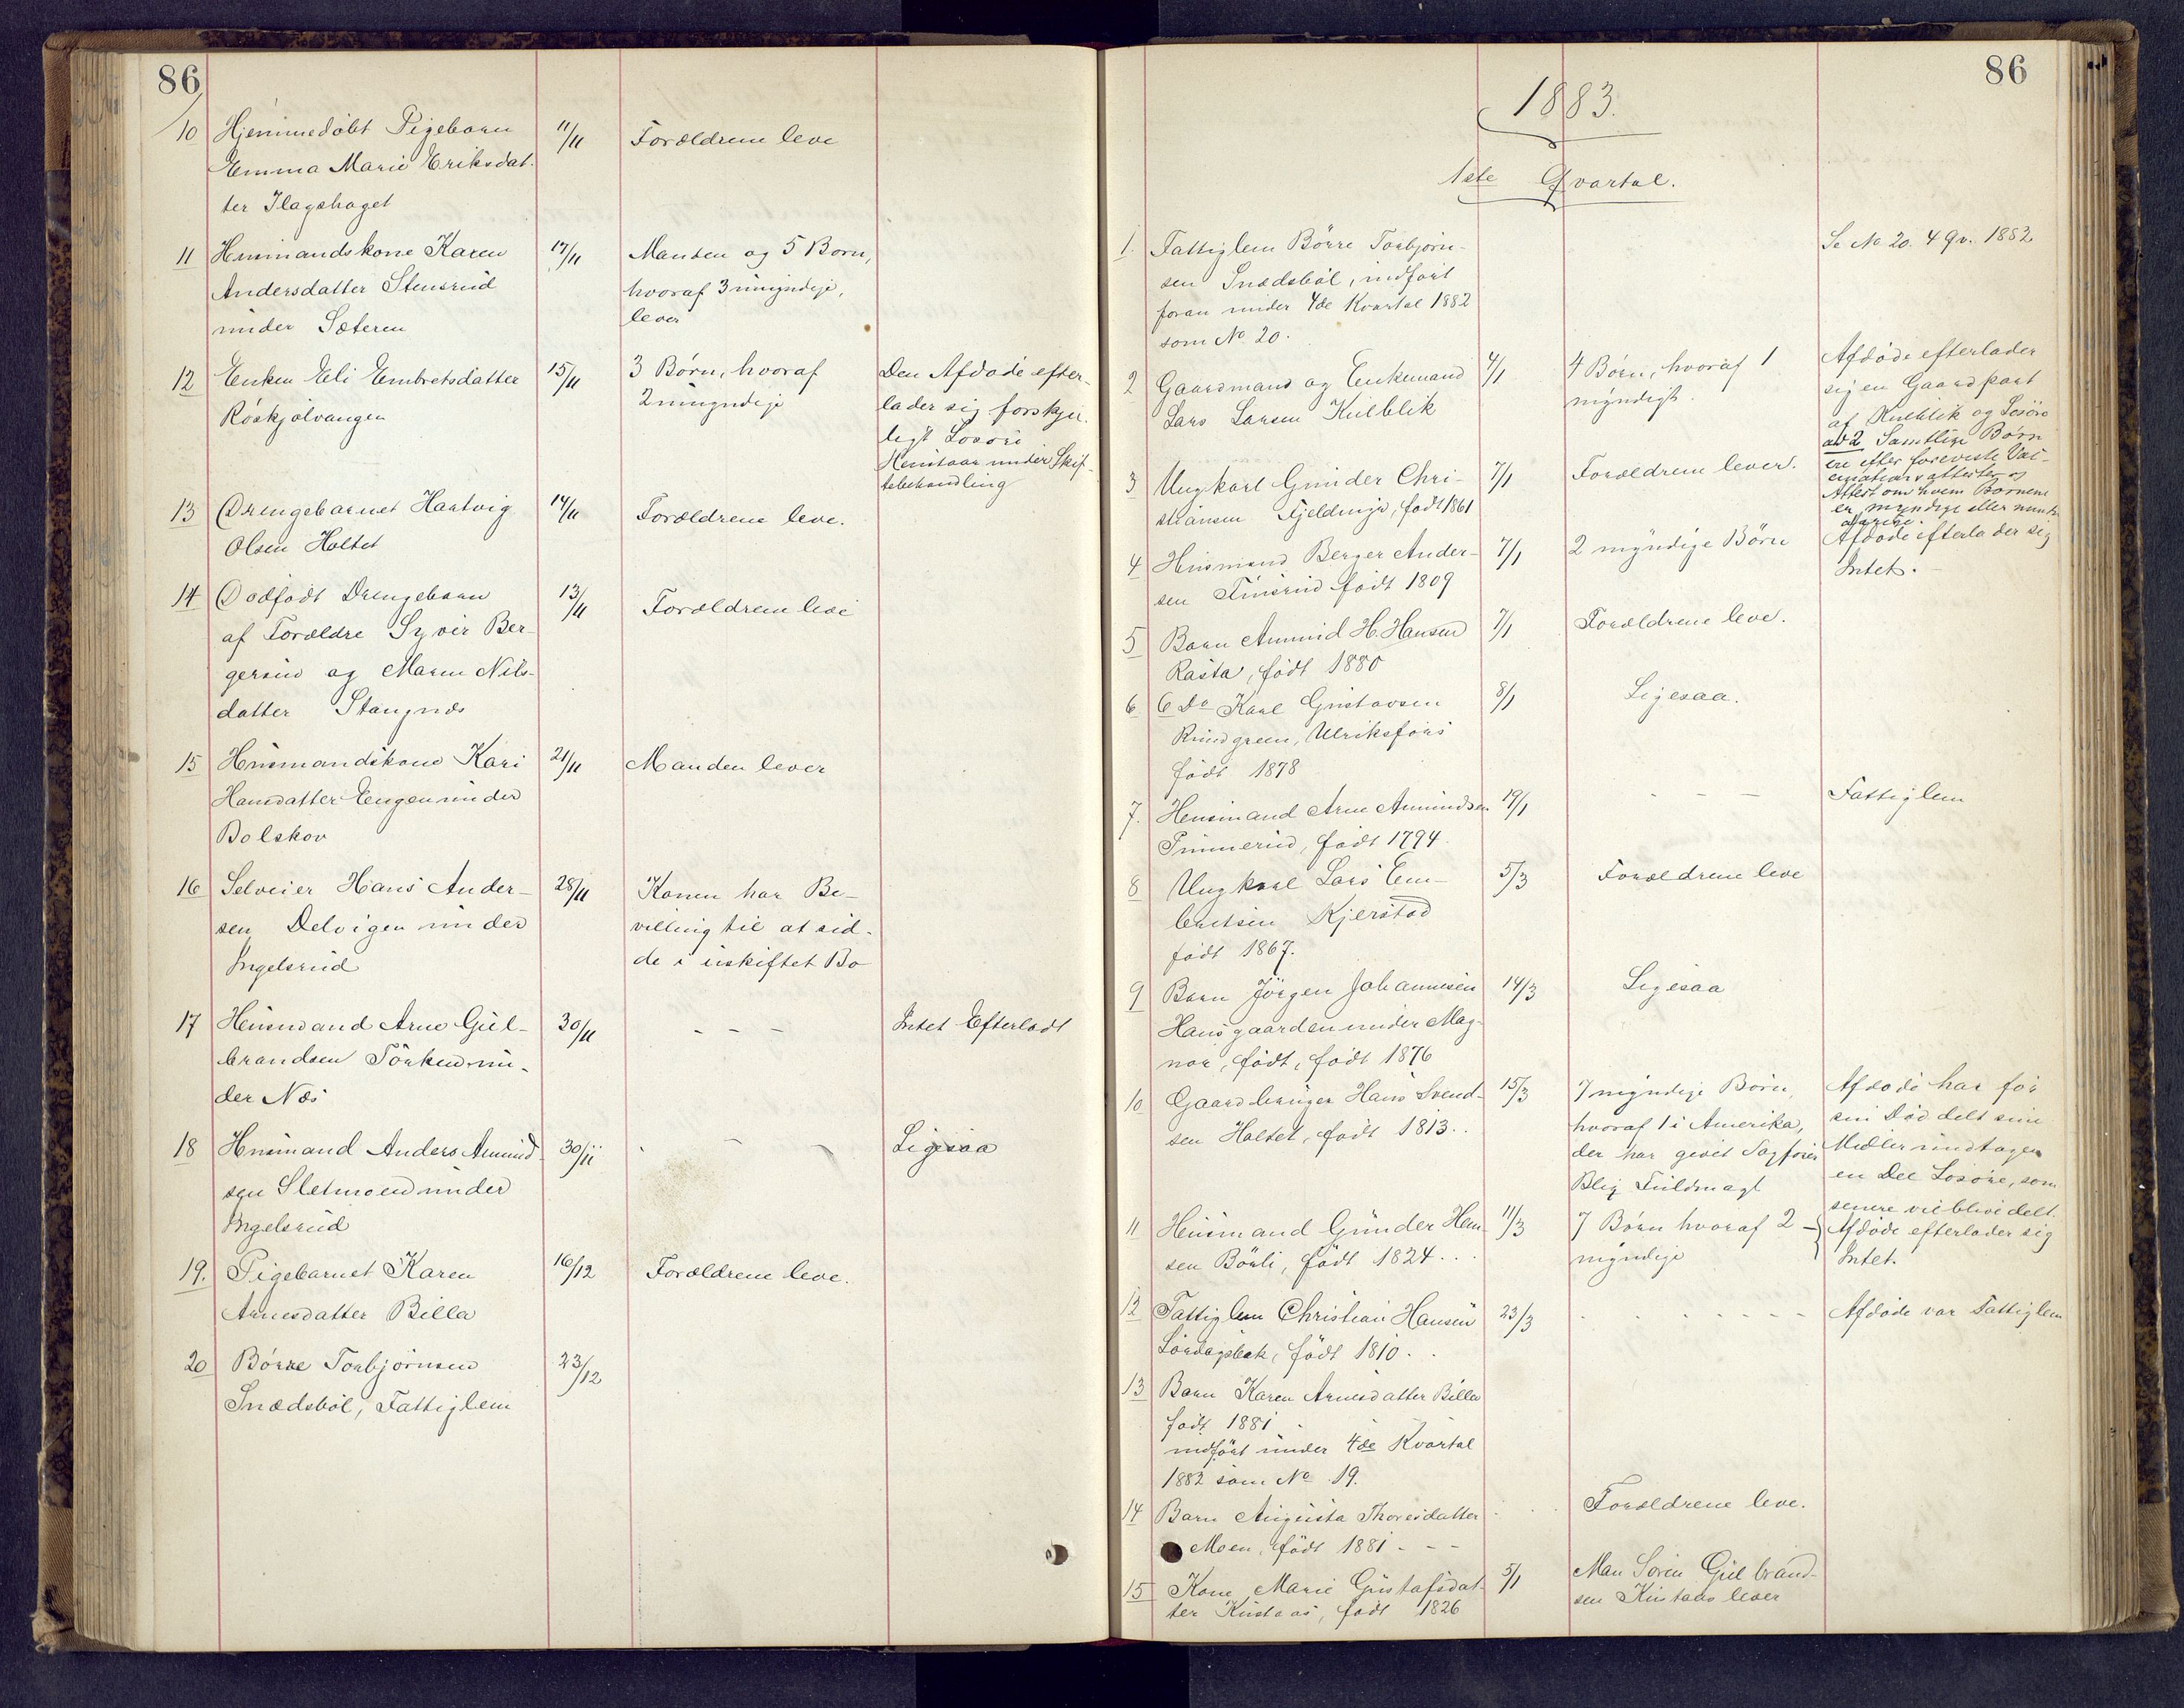 86
10 Hjemmedøbt Pigebarn 11/11 Forældrene leve
Emma Marie Eriksdat-
ter Ilagshaget
11 Husmandskone Karen 17/11 Manden og 5 Børn,
Andersdatter Stensrud hvoraf 3 umyndige,
under Sæteren lever
12 Enken Eli Embretsdatter 15/11 3 Børn, hvoraf Den Afdøde efter-
Røskjølvangen 2 umyndige lader sig forskjel-
ligt Løsøre
Henstaar under Skif-
tebehandling
13 Drengebarnet Hartvig 14/11 Forældrene leve.
Olsen Holtet
14 Dødfødt Drengebarn 13/11 Forældrene leve
af Forældre Syver Ber-
gersen og Maren Nils-
datter Stangnæs
15 Husmandskone Kari 21/11 Manden lever
Hansdatter Engen under
Bolskov
16 Selveier Hans Ander- 28/11 Konen har Be-
sen Delvigen under villing til at sid-
Ingelsrud de i uskiftet Bo
17 Husmand Arne Gul- 30/11 - - - Intet Efterladt
brandsen Tørken un-
der Næs
18 Husmand Anders Amund- 30/11 Ligesaa
sen Sletmoen under
Ingelsrud
19. Pigebarnet Karen 16/12 Forældrene leve.
Arnesdatter Billa
20 Børre Torbjørnsen 23/12
Snædsbøl, Fattiglem
86
1883.
1ste Qvartal.
1. Fattiglem Børre Torbjørn- Se No 20. 4 Qv. 1882
sen Snædsbøl, indført
foran under 4de Kvartal 1882
som No 20.
2 Gaardmand og Enkemand 4/1 4 Børn, hvoraf 1 Afdøde efterlader
Lars Larsen Kulblik myndigt. sig en Gaardpart
af Kulblik og Løsøre
ad 2 Samtlige Børn
ere efter foreviste Vac-
cinationsattester og
Attest om hvem Børnene
er myndige eller
3 Ungkarl Gunder Chri- 7/1 Forældrene lever.
stiansen Fjeldinge, født 1861
4 Husmand Berger Ander- 7/1 2 myndige Børn Afdøde efterlader sig
sen Finsrud født 1809 Intet.
5 Barn Amund H. Hansen 7/1 Forældrene leve.
Rasta, født 1880
6 6 Do Karl Gustavsen 8/1 Ligesaa.
Rundgreen, Ulriksfors
født 1878
7. Husmand Arne Amundsen 19/1 - - - Fattiglem
Timmerud, født 1794.
8 Ungkarl Lars Em- 5/3 Forældrene leve
bretsen Kjerstad
født 1867.
9 Barn Jörgen Johannesen 14/3 Ligesaa
Hansgaarden under Mag-
nor, født, født 1876
10 Gaardbruger Hans Svend- 15/3 7 myndige Børn, Afdøde har før
sen Holtet, født 1813.. hvoraf 1 i Amerika, sin Død delt sine
der har givet Sagfører Midler undtagen
Blig Fuldmagt en Del Løsøre, som
senere vil blive delt.
11 Husmand Gunder Han- 11/3 7 Børn hvoraf 2 - Afdøde efterlader sig
sen Börli, født 1824... myndige Intet.
12 Fattiglem Christian Hansen 23/3 - - - - - - Afdøde var Fattiglem
Lördagsbak, født 1810..
13 Barn Karen Arnesdatter Billa
født 1881
indført under 4de Kvartal
1882 som No 19.
14 Barn Augusta Thoresdatter Forældrene leve.
Moen, født 1881 - - -
15 Kone Marie Gustafsdat- 5/1 Man Sören Gulbrand-
ter Kustaas, født 1826 sen Kustaas lever